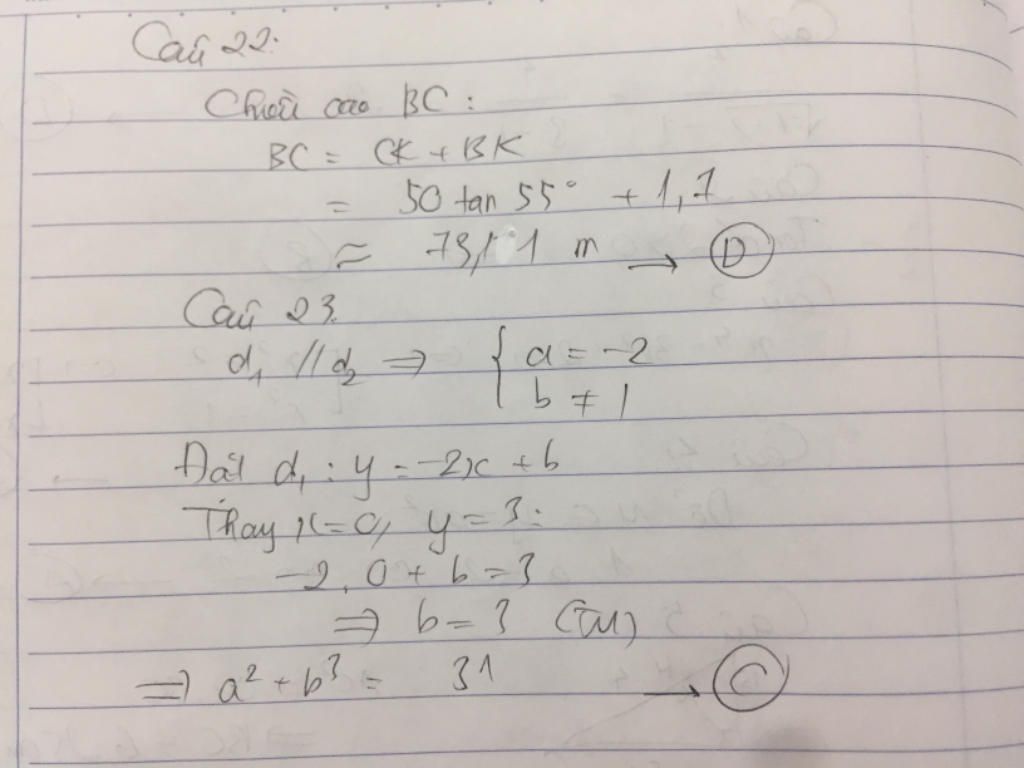 Câu 22:
Chiều cao BC:
BC = CK + BK
= 50 tan 55° + 1,7
≈ 73,11 m → D
Câu 23.
d₁ // d₂ ⇒ { a = -2
b ≠ 1
Đặt d₁ : y = -2x + b
Thay x = 0, y = 3:
-2.0 + b = 3
⇒ b = 3 (TM)
⇒ a² + b³ = 31 → C